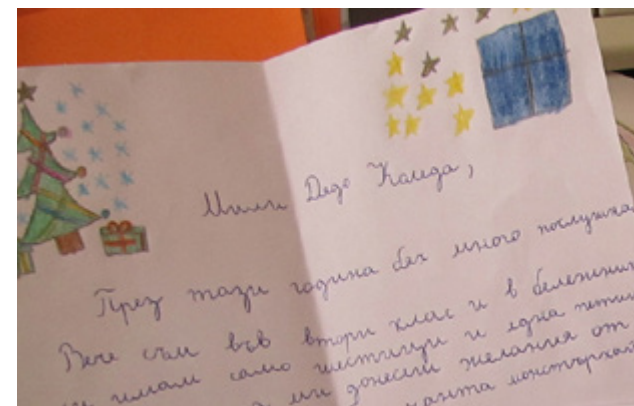 Мили Дядо Коледа,
През тази година бях много послушна
Вече съм във втори клас и в бележник
си имам само шестици и една пети
ми донесеш желания от